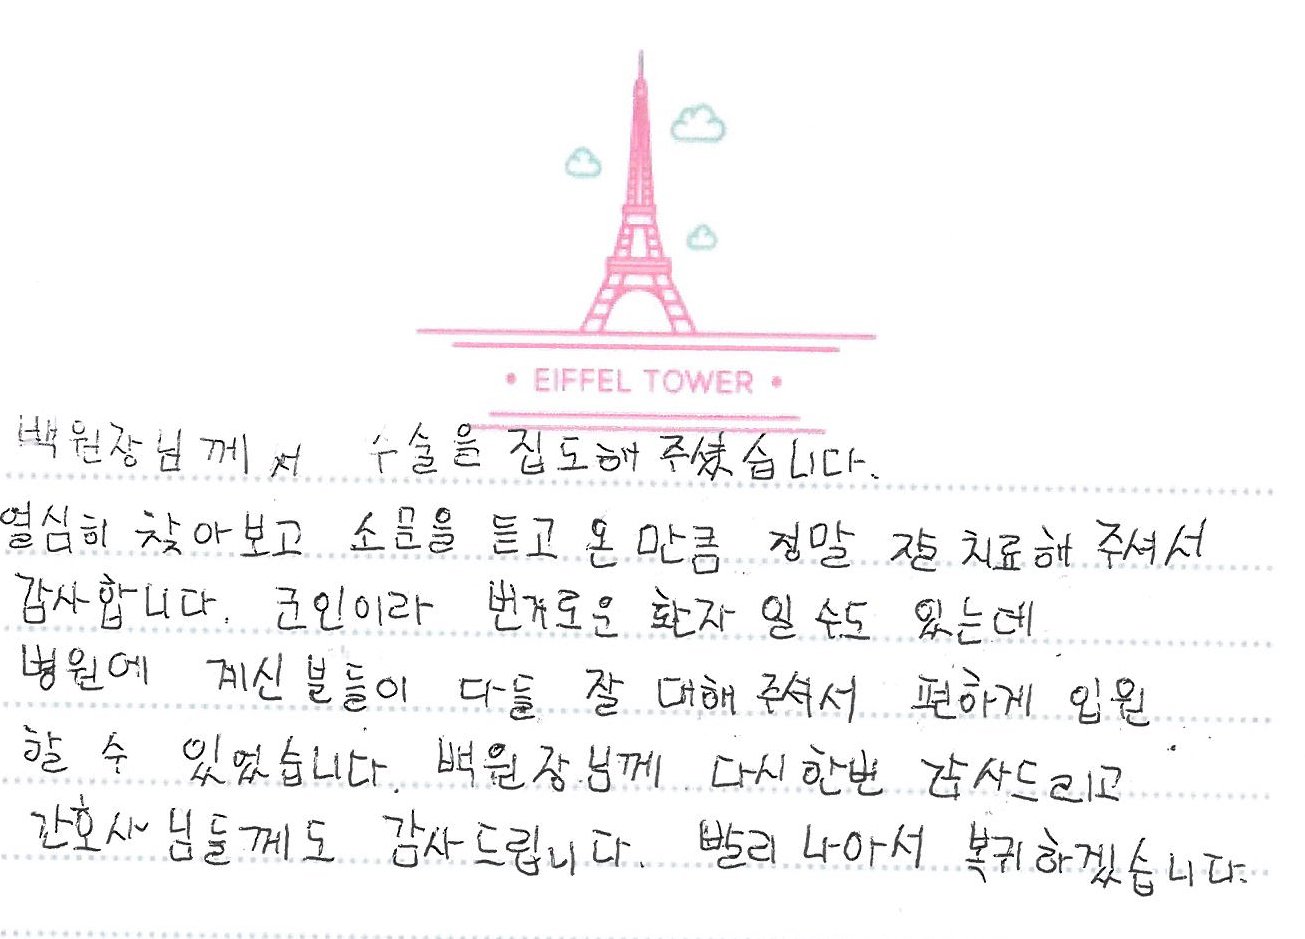 EIFFEL TOWER
백원장님께서 수술을 집도해 주셨습니다.
열심히 찾아보고 소문을 듣고 온 만큼 정말 잘 치료해 주셔서
감사합니다. 군인이라 번거로운 환자 일 수도 있는데
병원에 계신 분들이 다들 잘 대해 주셔서 편하게 입원
할 수 있었습니다. 백원장님께 다시한번 감사드리고
간호사님들께도 감사드립니다. 빨리 나아서 복귀하겠습니다.